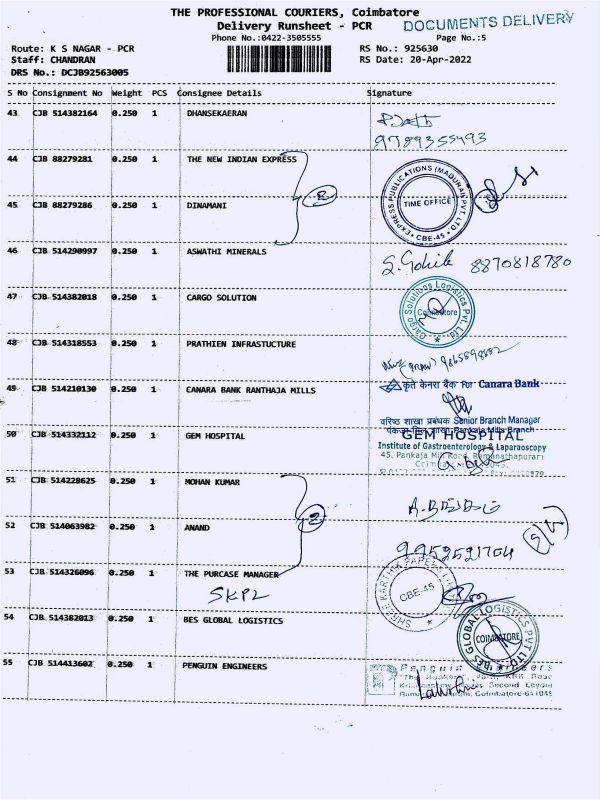 THE PROFESSIONAL COURIERS, Coimbatore
Delivery Runsheet - PCR
DOCUMENTS DELIVERY
Phone No.:0422-3505555
Page No.:5
Route: K S NAGAR - PCR
RS No.: 925630
Staff: CHANDRAN
RS Date: 20-Apr-2022
DRS No.: DCJB92563005
S No Consignment No Weight PCS Consignee Details Signature
43 CJB 514382164 0.250 1 DHANSEKAERAN
9789355493
44 CJB 88279281 0.250 1 THE NEW INDIAN EXPRESS
EXPRESS PUBLICATIONS (MADURAI) PVT. LTD.
TIME OFFICE
CBE-45
2
45 CJB 88279286 0.250 1 DINAMANI
46 CJB 514290997 0.250 1 ASWATHI MINERALS
8870818780
47 CJB 514382018 0.250 1 CARGO SOLUTION
Cargo Solutions Logistics Pvt. Ltd.
Coimbatore
48 CJB 514318553 0.250 1 PRATHIEN INFRASTUCTURE
49 CJB 514210130 0.250 1 CANARA BANK RANTHAJA MILLS
कृते केनरा बैंक For Canara Bank
वरिष्ठ शाखा प्रबंधक Senior Branch Manager
Pankaja Mills Branch
50 CJB 514332112 0.250 1 GEM HOSPITAL
GEM HOSPITAL
Institute of Gastroenterology & Laparoscopy
45, Pankaja Mill Road, Ramanathapuram
51 CJB 514228625 0.250 1 MOHAN KUMAR
2
52 CJB 514063982 0.250 1 ANAND
9952521704
53 CJB 514326096 0.250 1 THE PURCASE MANAGER
SKPL
CBE-45
54 CJB 514382013 0.250 1 BES GLOBAL LOGISTICS
BES GLOBAL LOGISTICS PVT LTD
COIMBATORE
55 CJB 514413602 0.250 1 PENGUIN ENGINEERS
Penguin Engineers
Second Layout
Coimbatore-641045